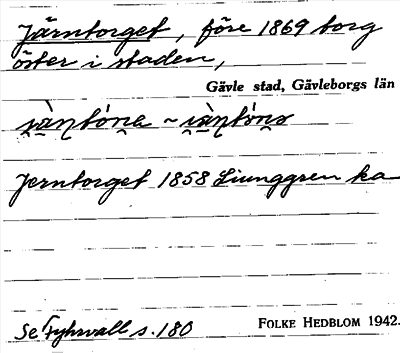 Järntorget, före 1869 torg
öster i staden,
Gävle stad, Gävleborgs län
Jerntorget 1858 Ljunggren ka
Se Fyhrvall s. 180
FOLKE HEDBLOM 1942.